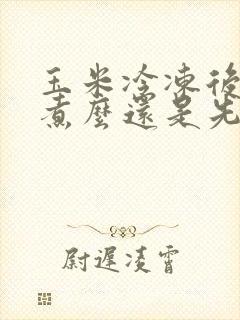 玉米冷凍後
煮麼還是先
尉遲凌霄